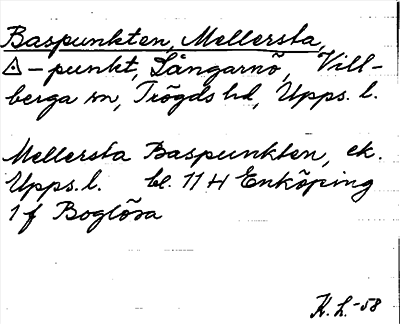 Baspunkten, Mellersta,
△ - punkt, Långarnö, Vill-
berga sn, Trögds hd, Upps. l.
Mellersta Baspunkten, ek.
Upps. l. bl. 11 H Enköping
1 f Boglösa
K. L. -58